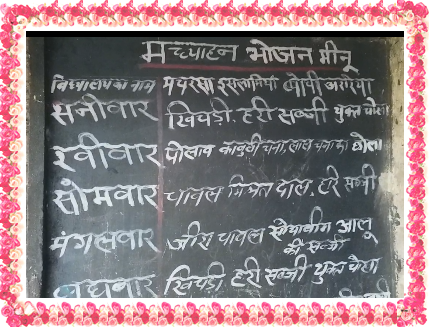 मध्याहन भोजन मीनू
विधालय का नाम मदरसा इसलामिया
सनीवार खिचड़ी, हरी सब्जी युक्त चोखा
रवीवार पोलाव काबुली चना, लाल चना का छोला
सोमवार चावल मिश्रत दाल, हरि सब्जी
मंगलवार जीरा चावल सोयावीन आलू की सब्जी
बुधवार खिचड़ी हरी सब्जी युक्त चोखा